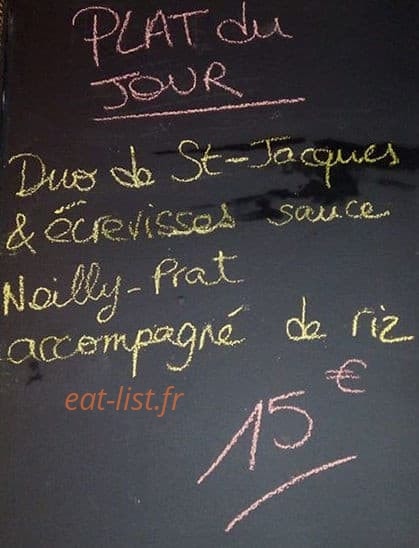 PLAT du
JOUR
Duo de St-Jacques
& écrevisses sauce
Noilly-Prat
accompagné de riz
eat-list.fr
15 €